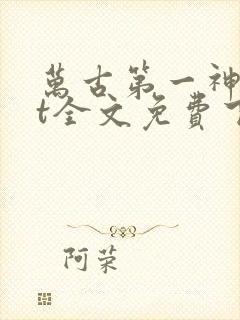 萬古第一神
t全文免費
阿荣